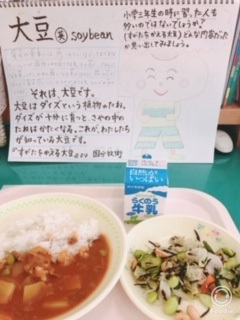 大豆 英 soybean
それは、大豆です。
大豆はダイズという植物のたね。
ダイズが十分に育つと、さやの中の
たねはかたくなる。これが、わたしたち
が知っている大豆です。
『すがたをかえる大豆』より 国分牧衛
小学三年生の時に習った人も
多いのではないでしょうか?
『すがたをかえる大豆』どんな内容だった
か思い出してみましょう。
自然がいっぱい
らくのう
牛乳